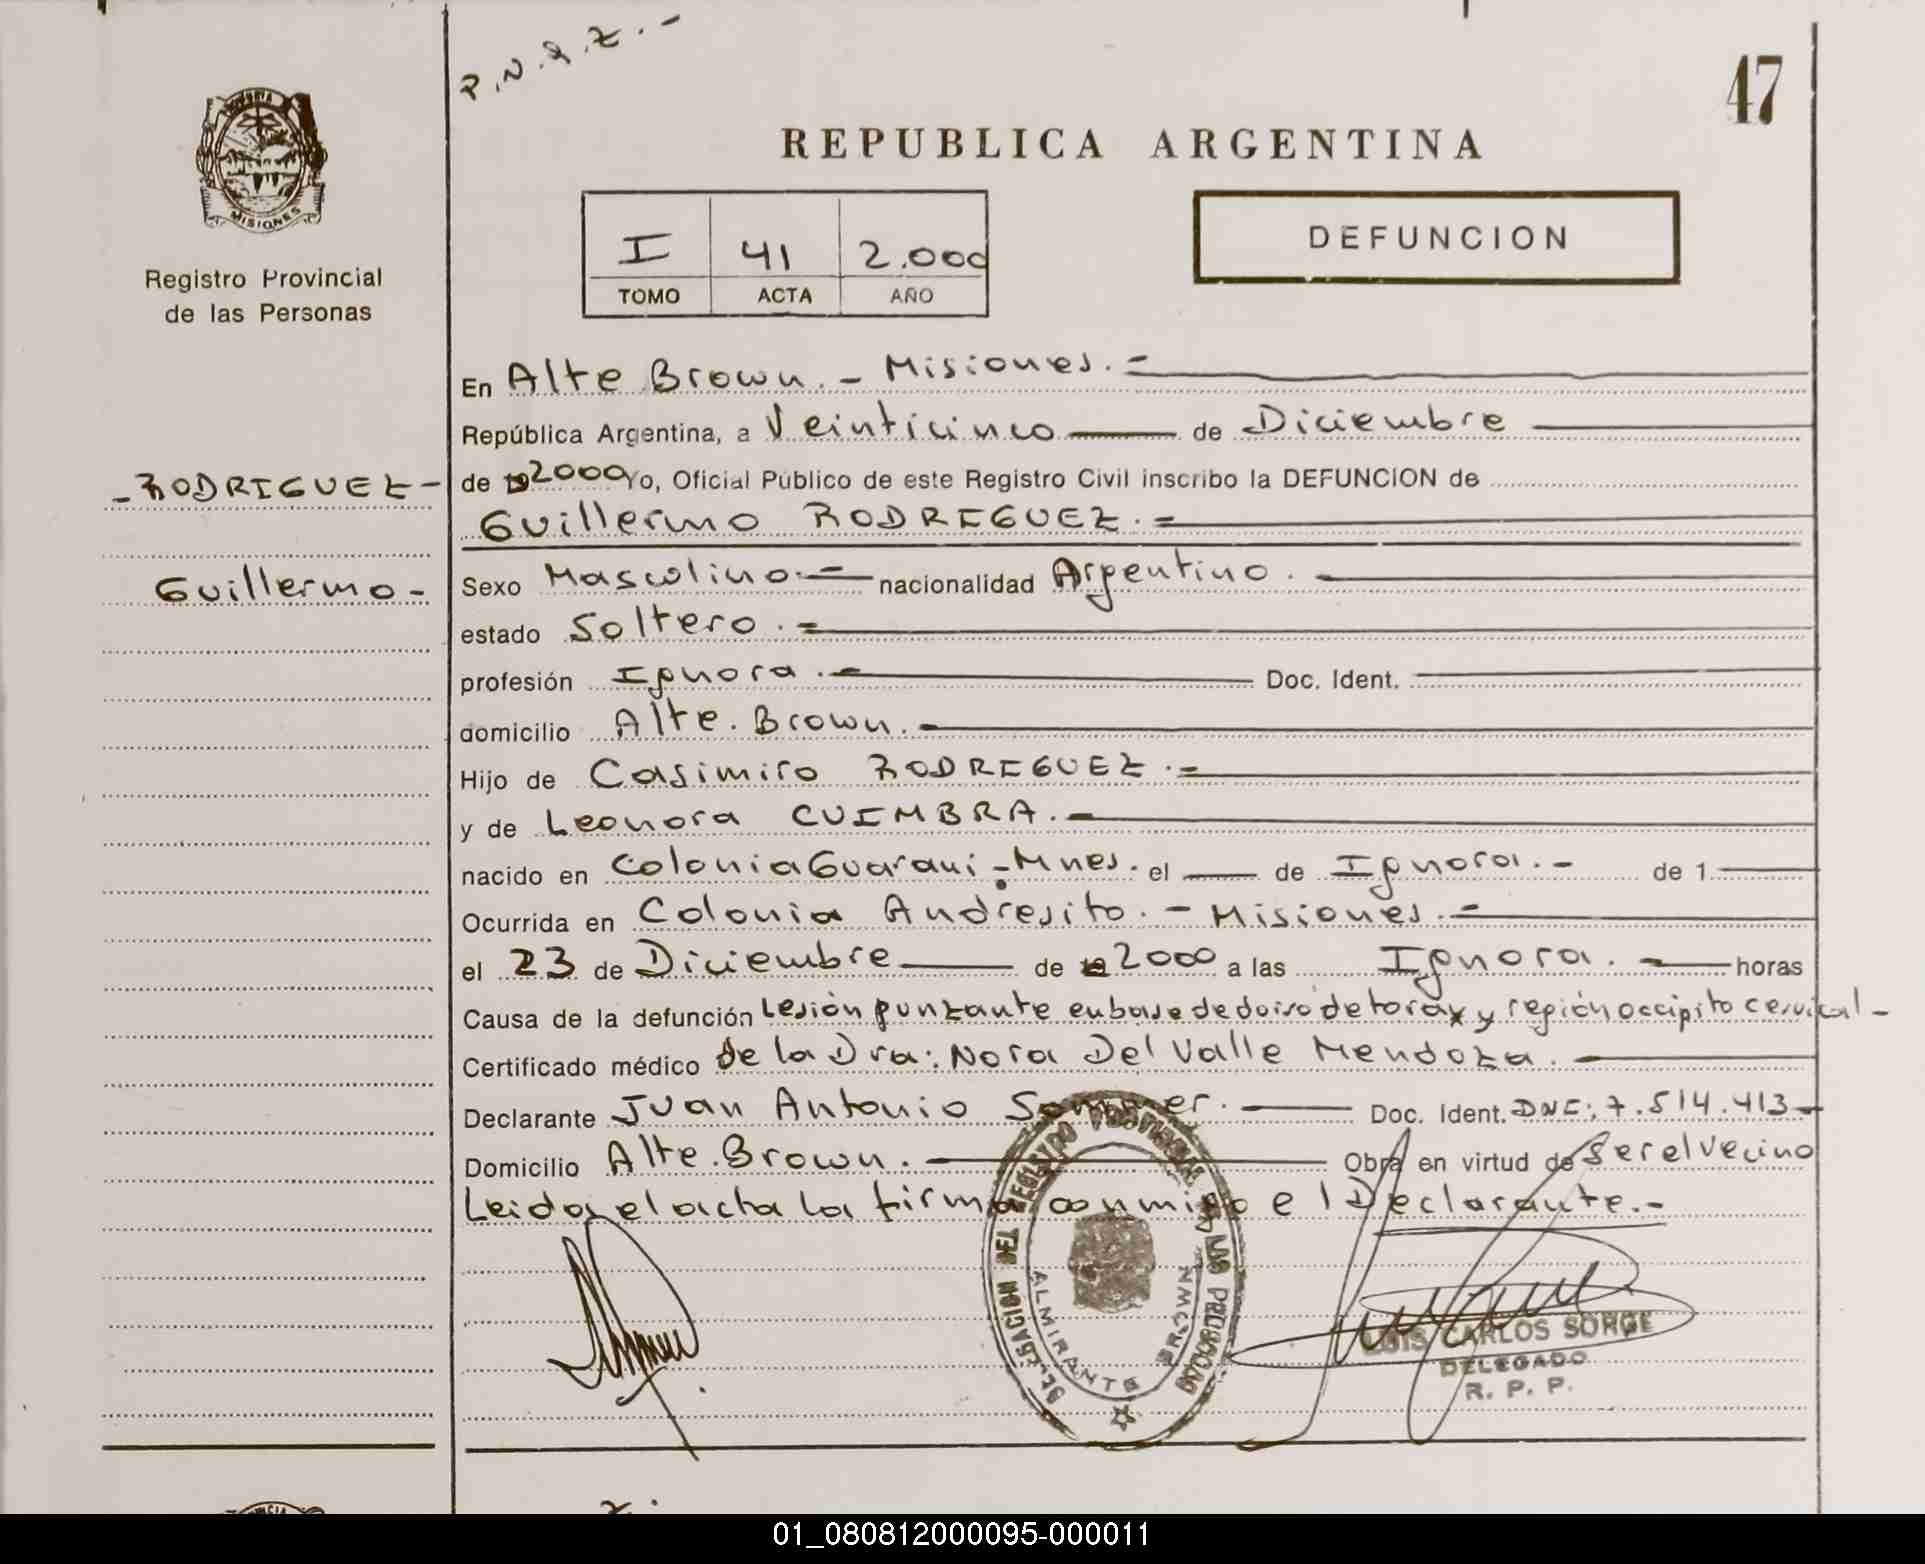 P.N.Q.Z.-
47
MISIONES
REPUBLICA ARGENTINA
I 41 2.000
TOMO ACTA AÑO
DEFUNCION
Registro Provincial
de las Personas
En Alte Brown.- Misiones.-
República Argentina, a Veinticinco de Diciembre
-RODRIGUEZ-
de 2000 Yo, Oficial Público de este Registro Civil inscribo la DEFUNCION de
Guillermo RODRIGUEZ.-
Guillermo-
Sexo Masculino.- nacionalidad Argentino.
estado Soltero.-
profesión Ignora.- Doc. Ident.
domicilio Alte. Brown.-
Hijo de Casimiro RODRIGUEZ.-
y de Leonora CUIMBRA.-
nacido en Colonia Guarani-Mnes. el — de Ignora.- de 1
Ocurrida en Colonia Andresito.- Misiones.-
el 23 de Diciembre de 2000 a las Ignora.- horas
Causa de la defunción Lesión punzante en base de dorso de torax y región occipito cervical-
Certificado médico de la Dra: Nora Del Valle Mendoza.-
Declarante Juan Antonio Doc. Ident. DNI: 7.514.413-
Domicilio Alte. Brown.- Obra en virtud de Ser el Vecino
Leida el acta la firma conmigo el Declarante.-
DELEGACION DEL REGISTRO PROVINCIAL DE LAS PERSONAS
ALMIRANTE BROWN
LUIS CARLOS SORGE
DELEGADO
R. P. P.
01_080812000095-000011